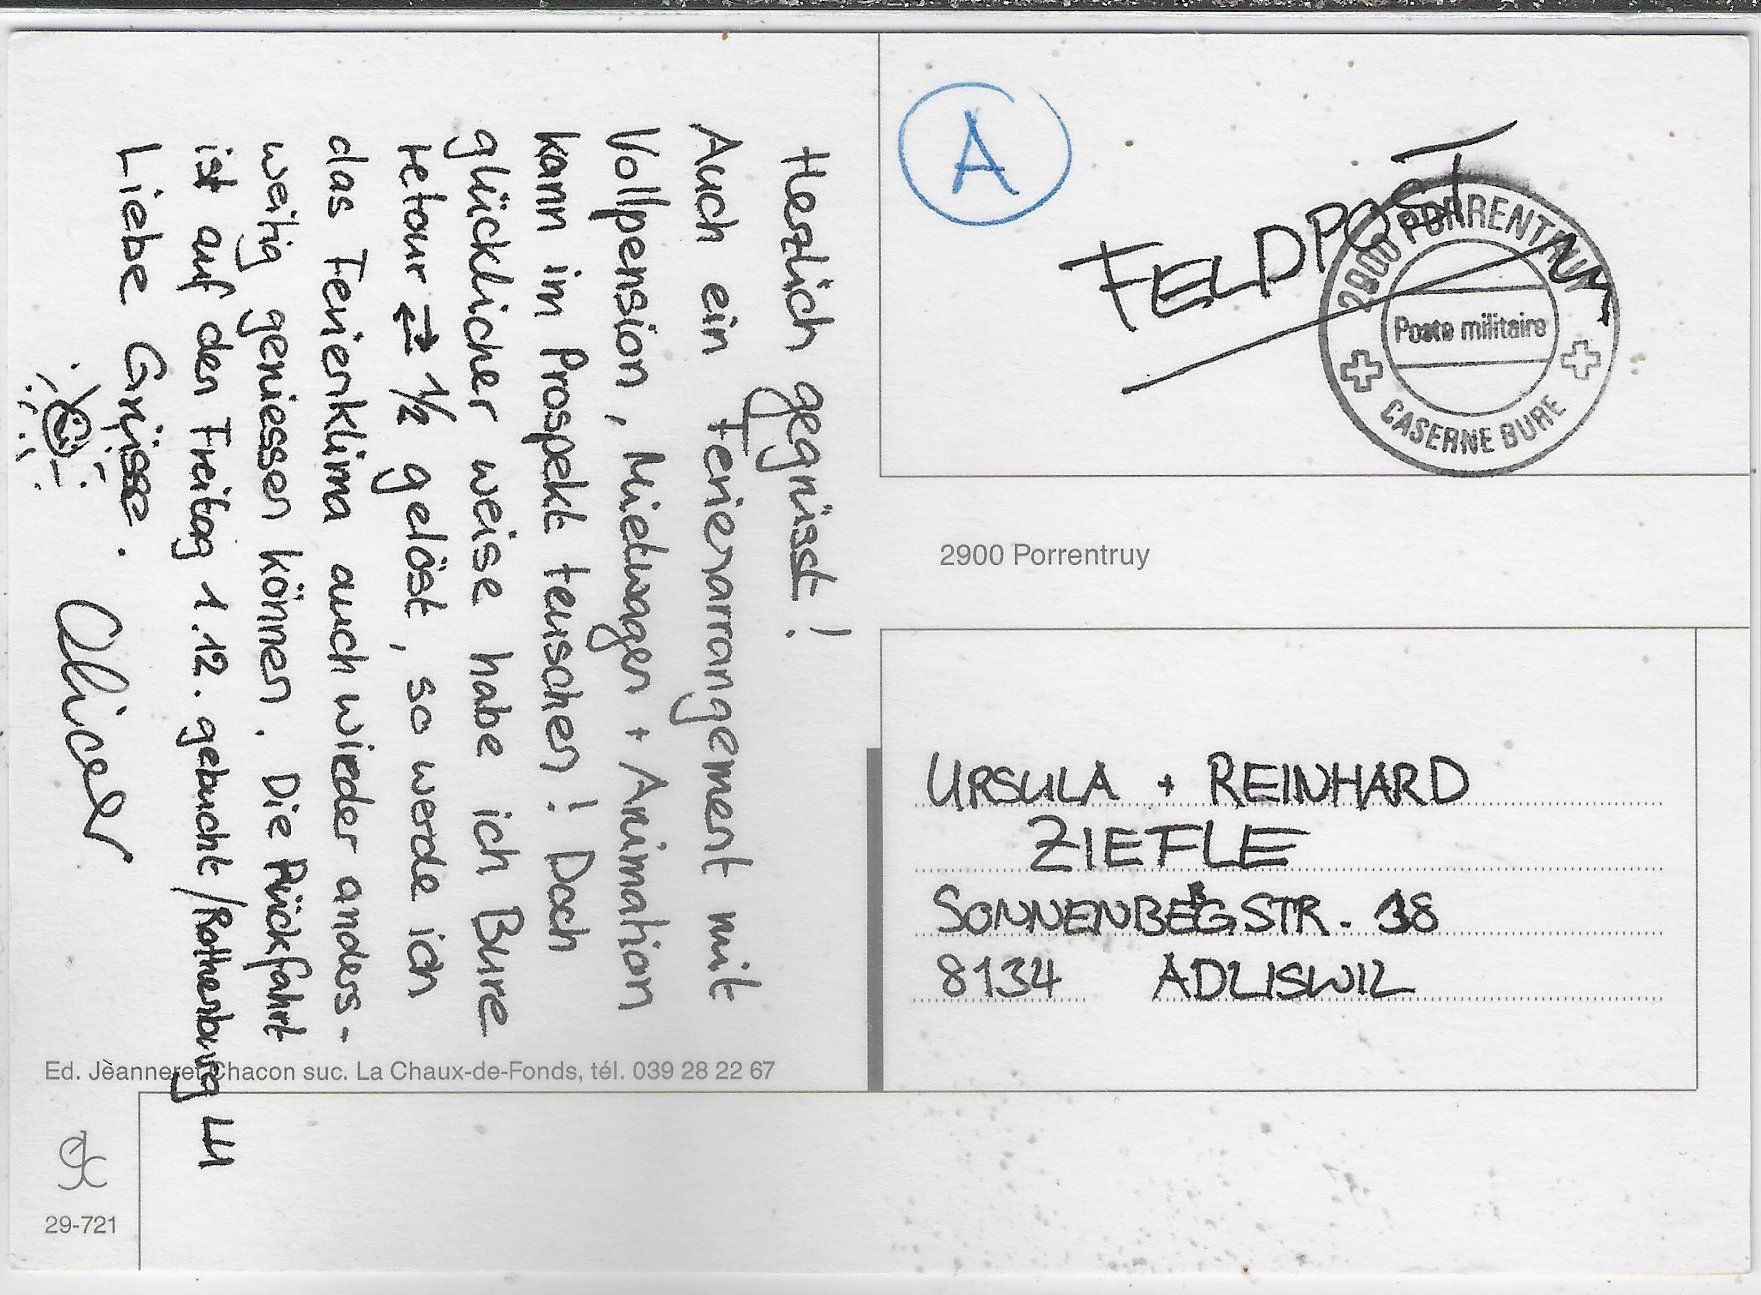 Herzlich gegrüsst!
Auch ein Ferienarrangement mit
Vollpension, Mietwagen + Animation
kann im Prospekt teuschen! Doch
glücklicher weise habe ich Bure
retour ⇄ 1/2 gelöst, so werde ich
das Ferienklima auch wieder anders-
weitig geniessen können. Die Rückfahrt
ist auf den Freitag 1.12. gebucht/Rothenburg
Liebe Grüsse.
Oliver
A
FELDPOST
2900 PORRENTRUY
Poste militaire
CASERNE BURE
2900 Porrentruy
URSULA + REINHARD
ZIEFLE
SONNENBERGSTR. 38
8134 ADLISWIL
Ed. Jeanneret Chacon suc. La Chaux-de-Fonds, tél. 039 28 22 67
29-721